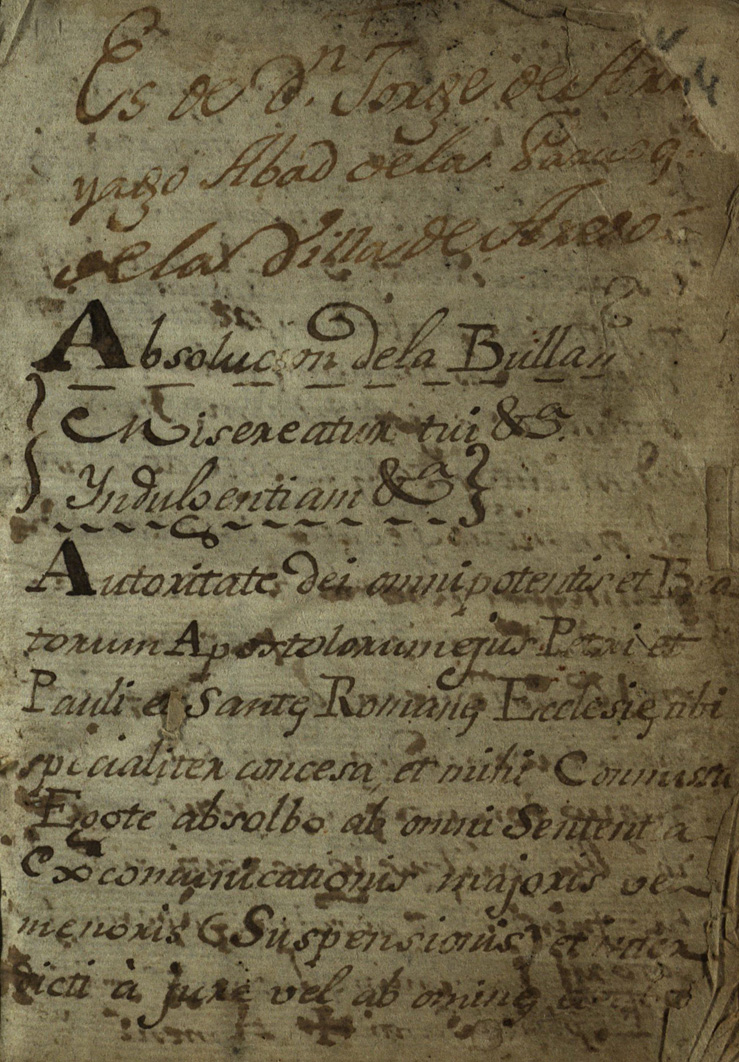 Es de Dn. Jorge de
yago Abad de la
de la Villa de Areso
Absolucion dela Bulla
Misereatur tui &a.
Yndulgentiam &a
Autoritate Dei omnipotentis et Bea
torum Apostolorum ejus Petri et
Pauli et Santę Romanę Ecclesię tibi
specialiter concesa, et mihi
Egote absolbo ab omni Sententia
excomunicationis majoris vel
menoris (Suspensionis) et inter
dicti à jure vel ab